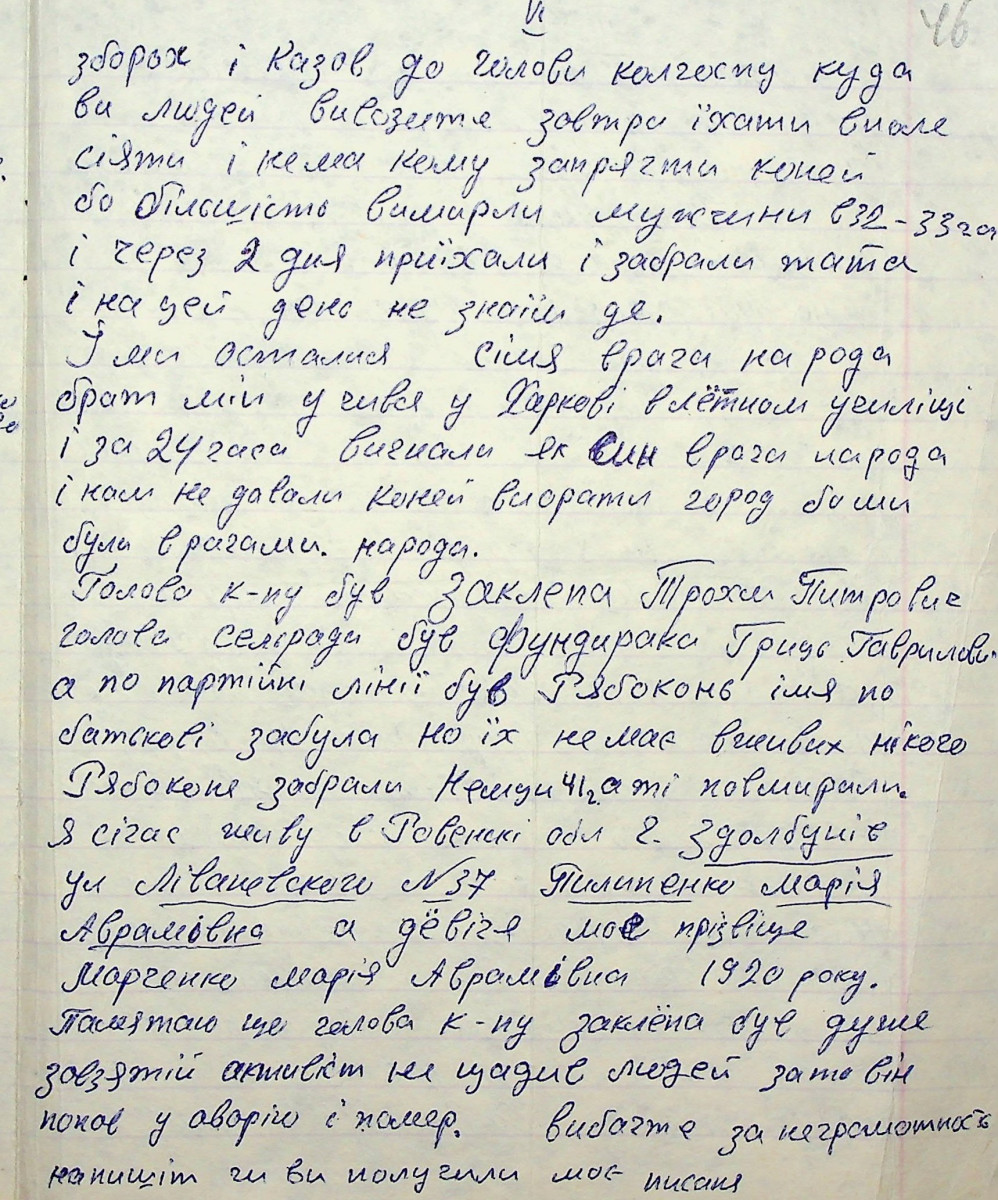 VI
46
зборах і казав до голови колгоспу куда
ви людей вивозите завтри їхати вполе
сіяти і нема кому запрягти коней
бо більшість вимирли мужчини в 32-33 год
і через 2 дня приїхали і забрали тата
і на цей день не знаїм де.
І ми осталися сімя врага народа
брат мій учився у Харкові в лётном училіщі
і за 24 часа вигнали як син врага народа
і нам не давали коней виорати город бо ми
були врагами. народа.
Голова к-пу був Заклепа Трохим Питрович
голова селради був Фундирака Гриць Гаврилови
а по партійні лінії був Рябоконь імя по
батькові забула но їх немає вживих нікого
Рябоконе забрали Немци 41г. а ті повмирали.
Я сігас живу в Ровенскі обл г. Здолбунів
ул Лівановского №37 Пилипенко Марія
Аврамівна а дёвічя моє прізвіще
Марченко Марія Аврамівна 1920 року.
Памятаю що голова к-пу заклёпа був дуже
завзятій активіст не щадив людей зато він
попав у аварію і помер. вибачте за неграмотность
напишіт чи ви получили моє писаня